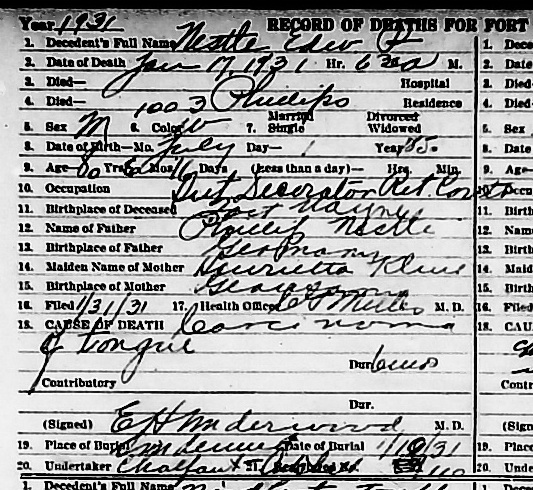 Year 1931 RECORD OF DEATHS FOR FORT
1. Decedent's Full Name Nestle Edw P 1. Dece
2. Date of Death Jan 17, 1931 Hr. 6 30 a M. 2. Date
3. Died— Hospital 3. Died
4. Died— 1003 Phillips Residence 4. Died
5. Sex M 6. Color W 7. Married Single Divorced Widowed 5. Sex
8. Date of Birth—Mo. July Day— 1 Year 50 8. Date
9. Age 80 Yrs. 6 Mos. 16 Days (less than a day)— Hrs. Min. 9. Age
10. Occupation Decorator Ret 10. Occu
11. Birthplace of Deceased Fort Wayne 11. Birth
12. Name of Father Phillip Nestle 12. Name
13. Birthplace of Father Germany 13. Birth
14. Maiden Name of Mother Henrietta Kline 14. Maid
15. Birthplace of Mother Germany 15. Birth
16. Filed 1/31/31 17. Health Officer M. D. 16. Filed
18. CAUSE OF DEATH Carcinoma 18. CAU
of tongue
Dur. 6 mos
Contributory Contr
Dur.
(Signed) E H Underwood M. D. (Sign
19. Place of Burial Lindenwood Date of Burial 31 19. Place
20. Undertaker Chalfant 21. 20. Unde
1. Decedent's Full Name 1. Dece